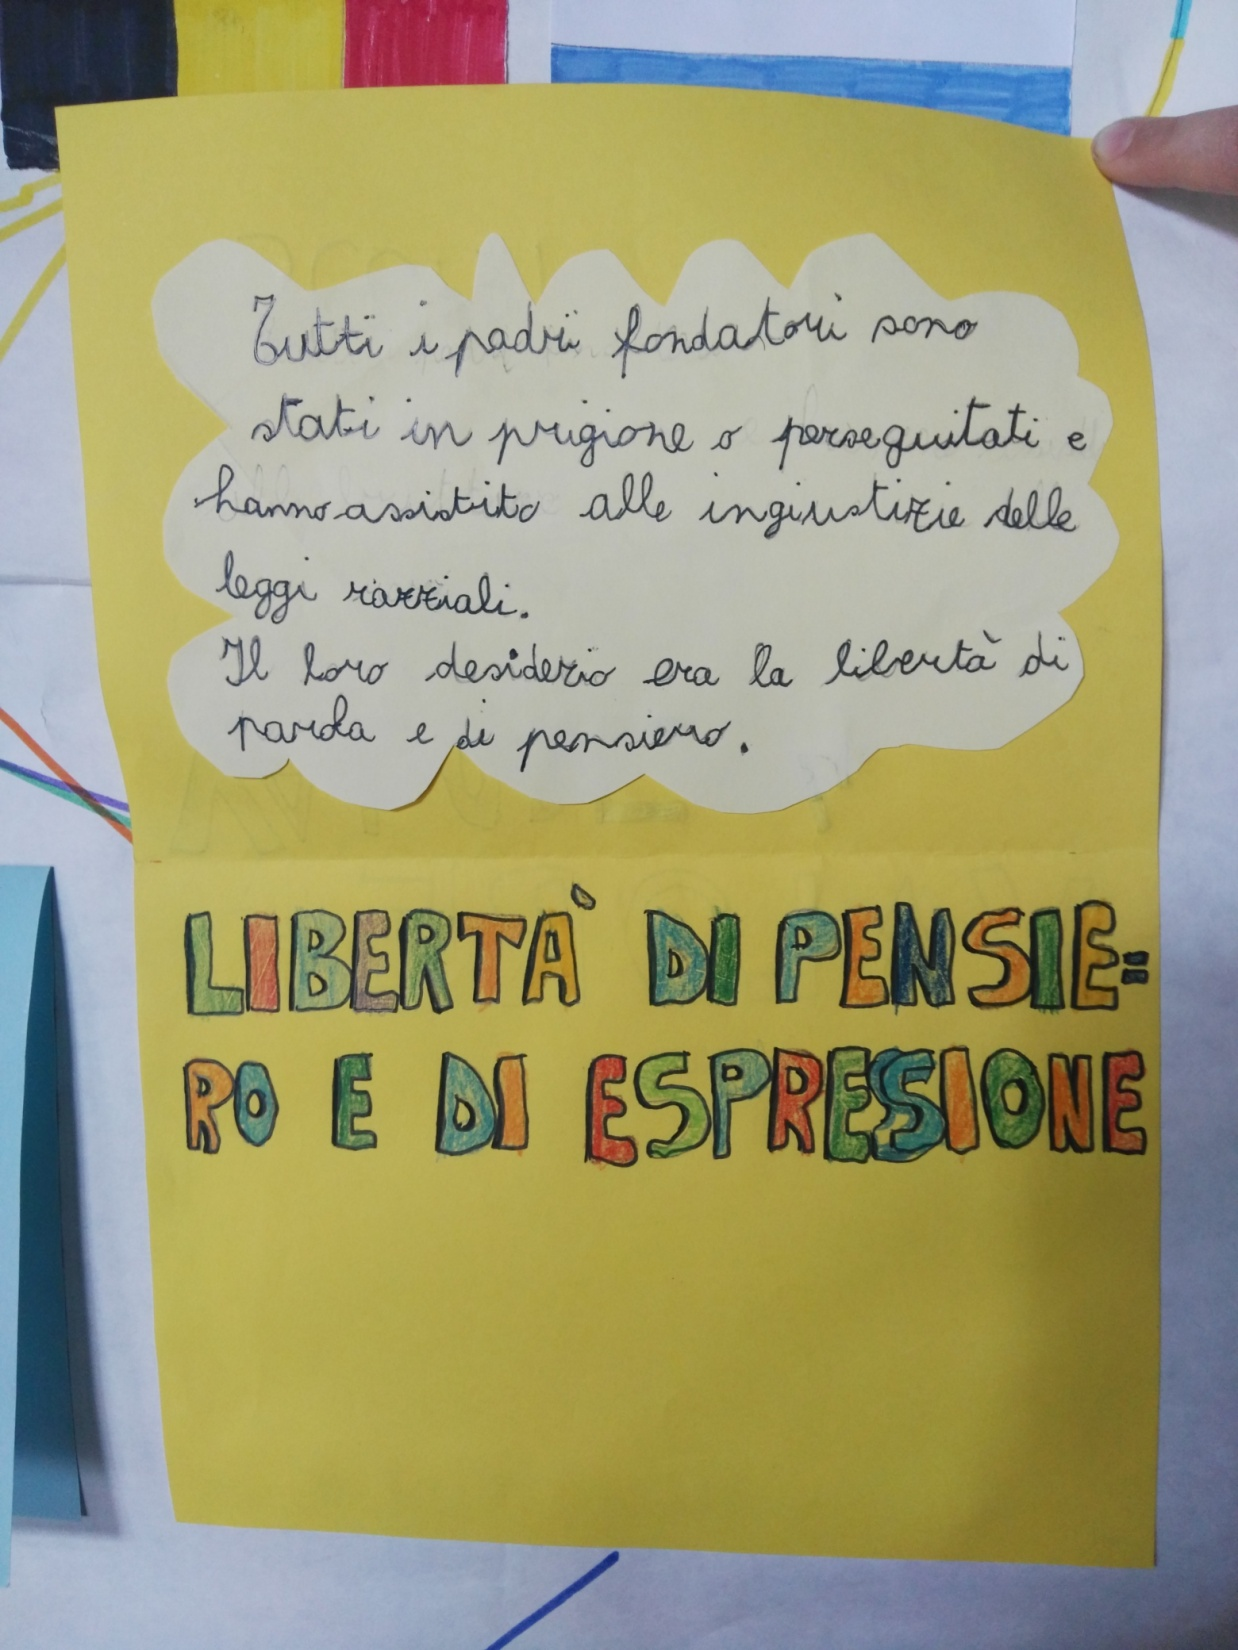 Tutti i padri fondatori sono
stati in prigione o perseguitati e
hanno assistito alle ingiustizie delle
leggi razziali.
Il loro desiderio era la libertà di
parola e di pensiero.
LIBERTÀ DI PENSIE=
RO E DI ESPRESSIONE